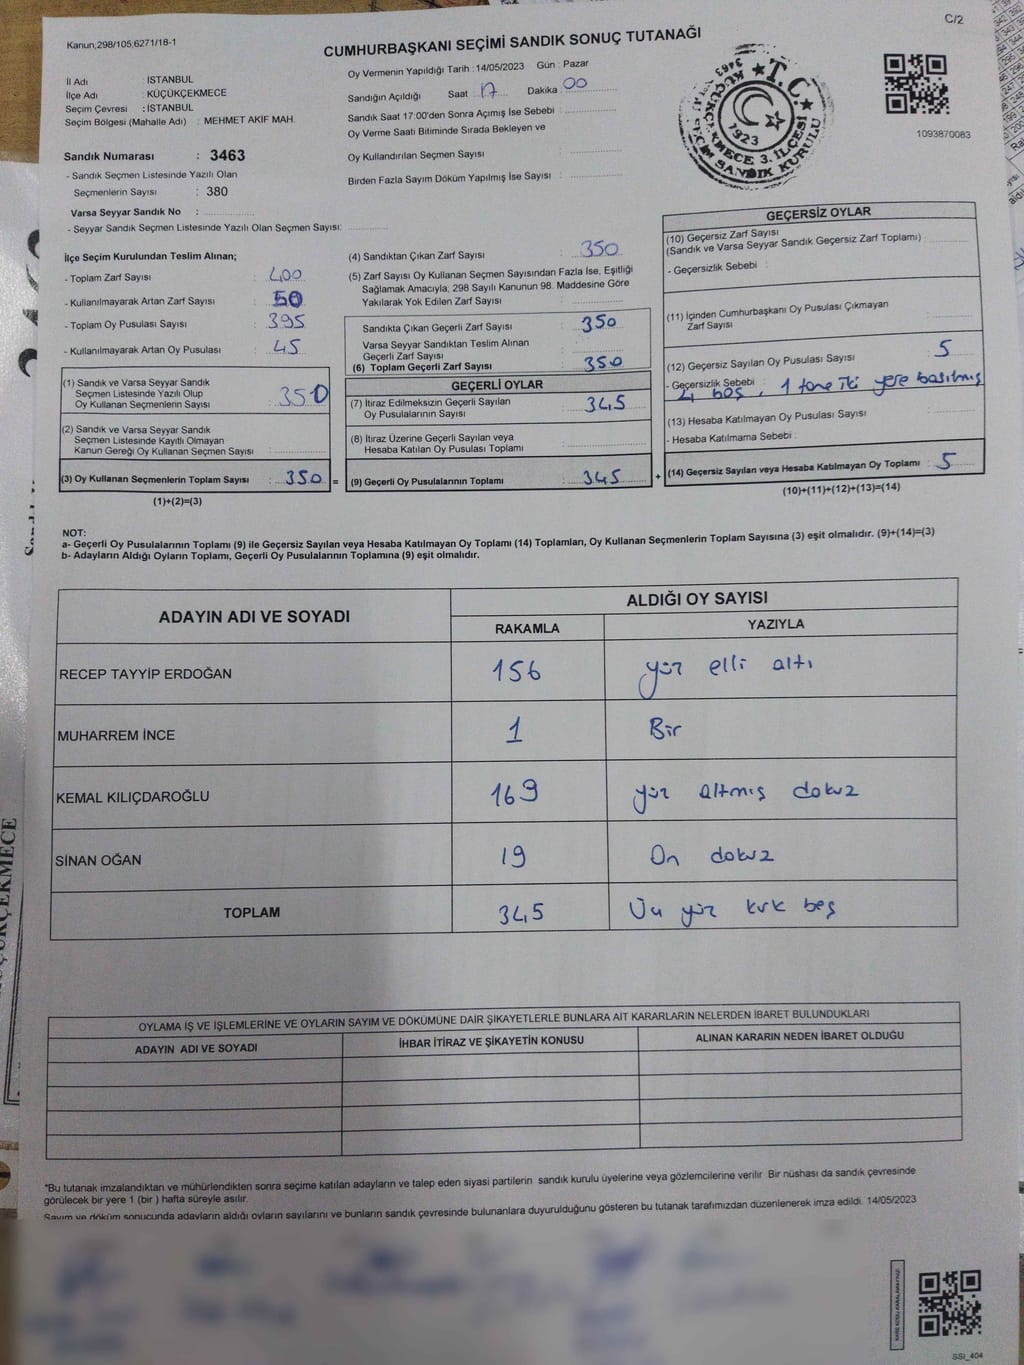 C/2
Kanun,298/105,6271/18-1
CUMHURBAŞKANI SEÇİMİ SANDIK SONUÇ TUTANAĞI
İl Adı : İSTANBUL
İlçe Adı : KÜÇÜKÇEKMECE
Seçim Çevresi : İSTANBUL
Seçim Bölgesi (Mahalle Adı) : MEHMET AKİF MAH.
Sandık Numarası : 3463
- Sandık Seçmen Listesinde Yazılı Olan
Seçmenlerin Sayısı : 380
Varsa Seyyar Sandık No :
- Seyyar Sandık Seçmen Listesinde Yazılı Olan Seçmen Sayısı:
Oy Vermenin Yapıldığı Tarih : 14/05/2023 Gün : Pazar
Sandığın Açıldığı Saat 17 Dakika 00
Sandık Saat 17:00'den Sonra Açımış İse Sebebi :
Oy Verme Saati Bitiminde Sırada Bekleyen ve
Oy Kullandırılan Seçmen Sayısı
Birden Fazla Sayım Döküm Yapılmış İse Sayısı :
T.C.
3463
KÜÇÜKÇEKMECE 3. İLÇESİ
1923
SEÇİM SANDIK KURULU
1093870083
İlçe Seçim Kurulundan Teslim Alınan;
- Toplam Zarf Sayısı : 400
- Kullanılmayarak Artan Zarf Sayısı : 50
- Toplam Oy Pusulası Sayısı : 395
- Kullanılmayarak Artan Oy Pusulası : 45
(1) Sandık ve Varsa Seyyar Sandık
Seçmen Listesinde Yazılı Olup
Oy Kullanan Seçmenlerin Sayısı : 350
(2) Sandık ve Varsa Seyyar Sandık
Seçmen Listesinde Kayıtlı Olmayan
Kanun Gereği Oy Kullanan Seçmen Sayısı :
(3) Oy Kullanan Seçmenlerin Toplam Sayısı : 350 =
(1)+(2)=(3)
(4) Sandıktan Çıkan Zarf Sayısı : 350
(5) Zarf Sayısı Oy Kullanan Seçmen Sayısından Fazla İse, Eşitliği
Sağlamak Amacıyla, 298 Sayılı Kanunun 98. Maddesine Göre
Yakılarak Yok Edilen Zarf Sayısı :
Sandıkta Çıkan Geçerli Zarf Sayısı : 350
Varsa Seyyar Sandıktan Teslim Alınan
Geçerli Zarf Sayısı :
(6) Toplam Geçerli Zarf Sayısı : 350
GEÇERLİ OYLAR
(7) İtiraz Edilmeksizin Geçerli Sayılan
Oy Pusulalarının Sayısı : 345
(8) İtiraz Üzerine Geçerli Sayılan veya
Hesaba Katılan Oy Pusulası Toplamı :
(9) Geçerli Oy Pusulalarının Toplamı : 345 +
GEÇERSİZ OYLAR
(10) Geçersiz Zarf Sayısı
(Sandık ve Varsa Seyyar Sandık Geçersiz Zarf Toplamı) :
- Geçersizlik Sebebi :
(11) İçinden Cumhurbaşkanı Oy Pusulası Çıkmayan
Zarf Sayısı :
(12) Geçersiz Sayılan Oy Pusulası Sayısı : 5
- Geçersizlik Sebebi : 4 boş, 1 tane iki yere basılmış
(13) Hesaba Katılmayan Oy Pusulası Sayısı :
- Hesaba Katılmama Sebebi :
(14) Geçersiz Sayılan veya Hesaba Katılmayan Oy Toplamı : 5
(10)+(11)+(12)+(13)=(14)
NOT:
a- Geçerli Oy Pusulalarının Toplamı (9) ile Geçersiz Sayılan veya Hesaba Katılmayan Oy Toplamı (14) Toplamları, Oy Kullanan Seçmenlerin Toplam Sayısına (3) eşit olmalıdır. (9)+(14)=(3)
b- Adayların Aldığı Oyların Toplamı, Geçerli Oy Pusulalarının Toplamına (9) eşit olmalıdır.
ADAYIN ADI VE SOYADI ALDIĞI OY SAYISI
RAKAMLA YAZIYLA
RECEP TAYYİP ERDOĞAN 156 yüz elli altı
MUHARREM İNCE 1 Bir
KEMAL KILIÇDAROĞLU 169 yüz altmış dokuz
SİNAN OĞAN 19 On dokuz
TOPLAM 345 Üç yüz kırk beş
OYLAMA İŞ VE İŞLEMLERİNE VE OYLARIN SAYIM VE DÖKÜMÜNE DAİR ŞİKAYETLERLE BUNLARA AİT KARARLARIN NELERDEN İBARET BULUNDUKLARI
ADAYIN ADI VE SOYADI İHBAR İTİRAZ VE ŞİKAYETİN KONUSU ALINAN KARARIN NEDEN İBARET OLDUĞU
"Bu tutanak imzalandıktan ve mühürlendikten sonra seçime katılan adayların ve talep eden siyasi partilerin sandık kurulu üyelerine veya gözlemcilerine verilir. Bir nüshası da sandık çevresinde
görülecek bir yere 1 (bir ) hafta süreyle asılır.
Sayım ve döküm sonucunda adayların aldığı oyların sayılarını ve bunların sandık çevresinde bulunanlara duyurulduğunu gösteren bu tutanak tarafımızdan düzenlenerek imza edildi. 14/05/2023
SSI_404